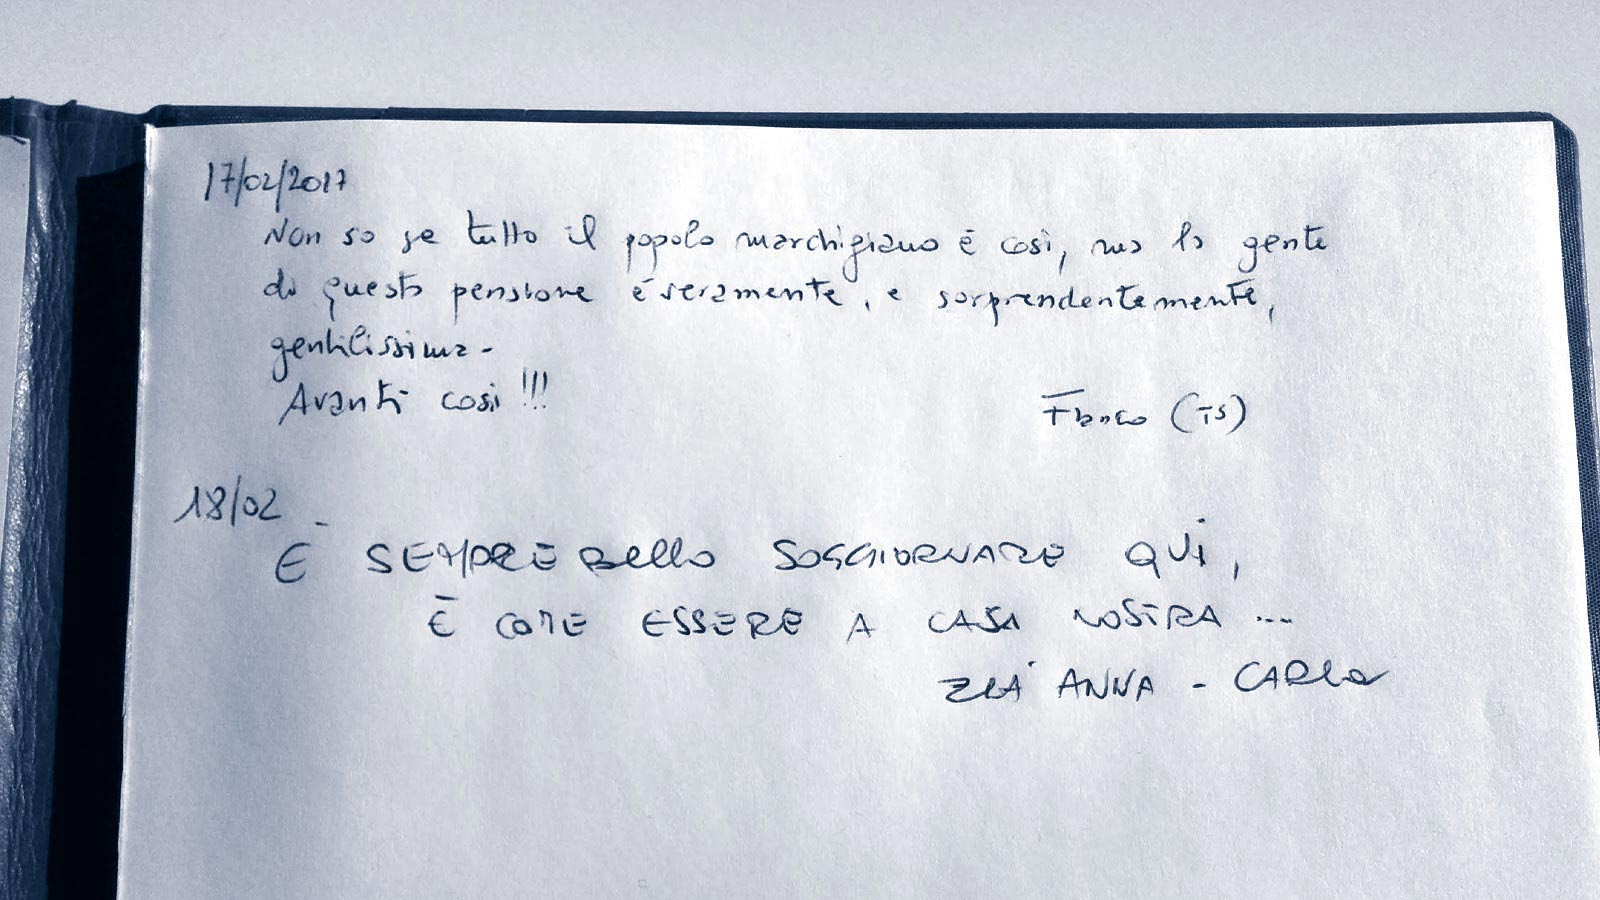 17/02/2017
Non so se tutto il popolo marchigiano è così, ma la gente
di questa pensione è veramente, e sorprendentemente,
gentilissima -
Avanti così !!!
Franco (TS)
18/02
È SEMPRE BELLO SOGGIORNARE QUI,
È COME ESSERE A CASA NOSTRA ...
ZIA ANNA - CARLO